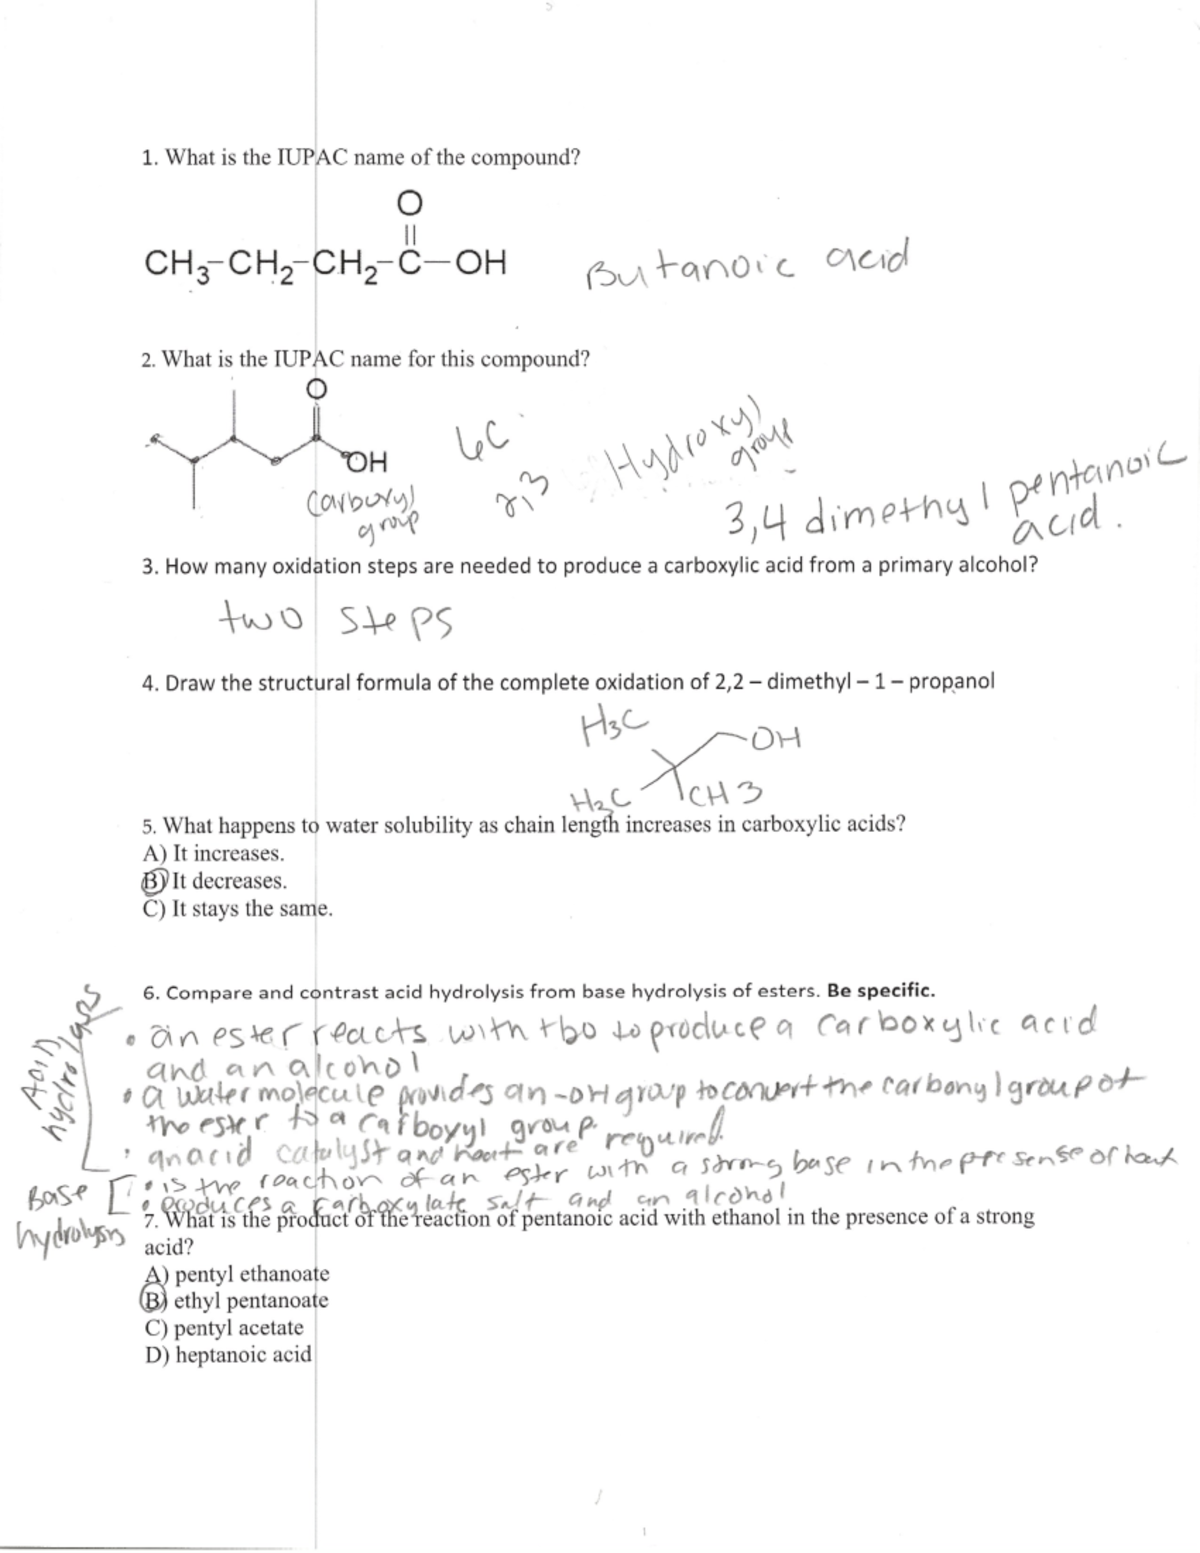 1. What is the IUPAC name of the compound?
O
||
CH3-CH2-CH2-C-OH
Butanoic acid
2. What is the IUPAC name for this compound?
O
OH
6C
Hydroxyl
group
Carboxyl
group
3,4 dimethyl pentanoic
acid.
3. How many oxidation steps are needed to produce a carboxylic acid from a primary alcohol?
two steps
4. Draw the structural formula of the complete oxidation of 2,2 – dimethyl – 1 – propanol
H3C
OH
CH3
5. What happens to water solubility as chain length increases in carboxylic acids?
A) It increases.
B) It decreases.
C) It stays the same.
6. Compare and contrast acid hydrolysis from base hydrolysis of esters. Be specific.
• an ester reacts with to produce a carboxylic acid
and an alcohol
• a water molecule provides an -OH group to convert the carbonyl group of
the ester to a carboxyl group.
• an acid catalyst and heat are required.
Base
hydrolysis
• is the reaction of an ester with a strong base in the presense of heat
• produces a carboxylate salt and an alcohol
7. What is the product of the reaction of pentanoic acid with ethanol in the presence of a strong
acid?
A) pentyl ethanoate
B) ethyl pentanoate
C) pentyl acetate
D) heptanoic acid
1